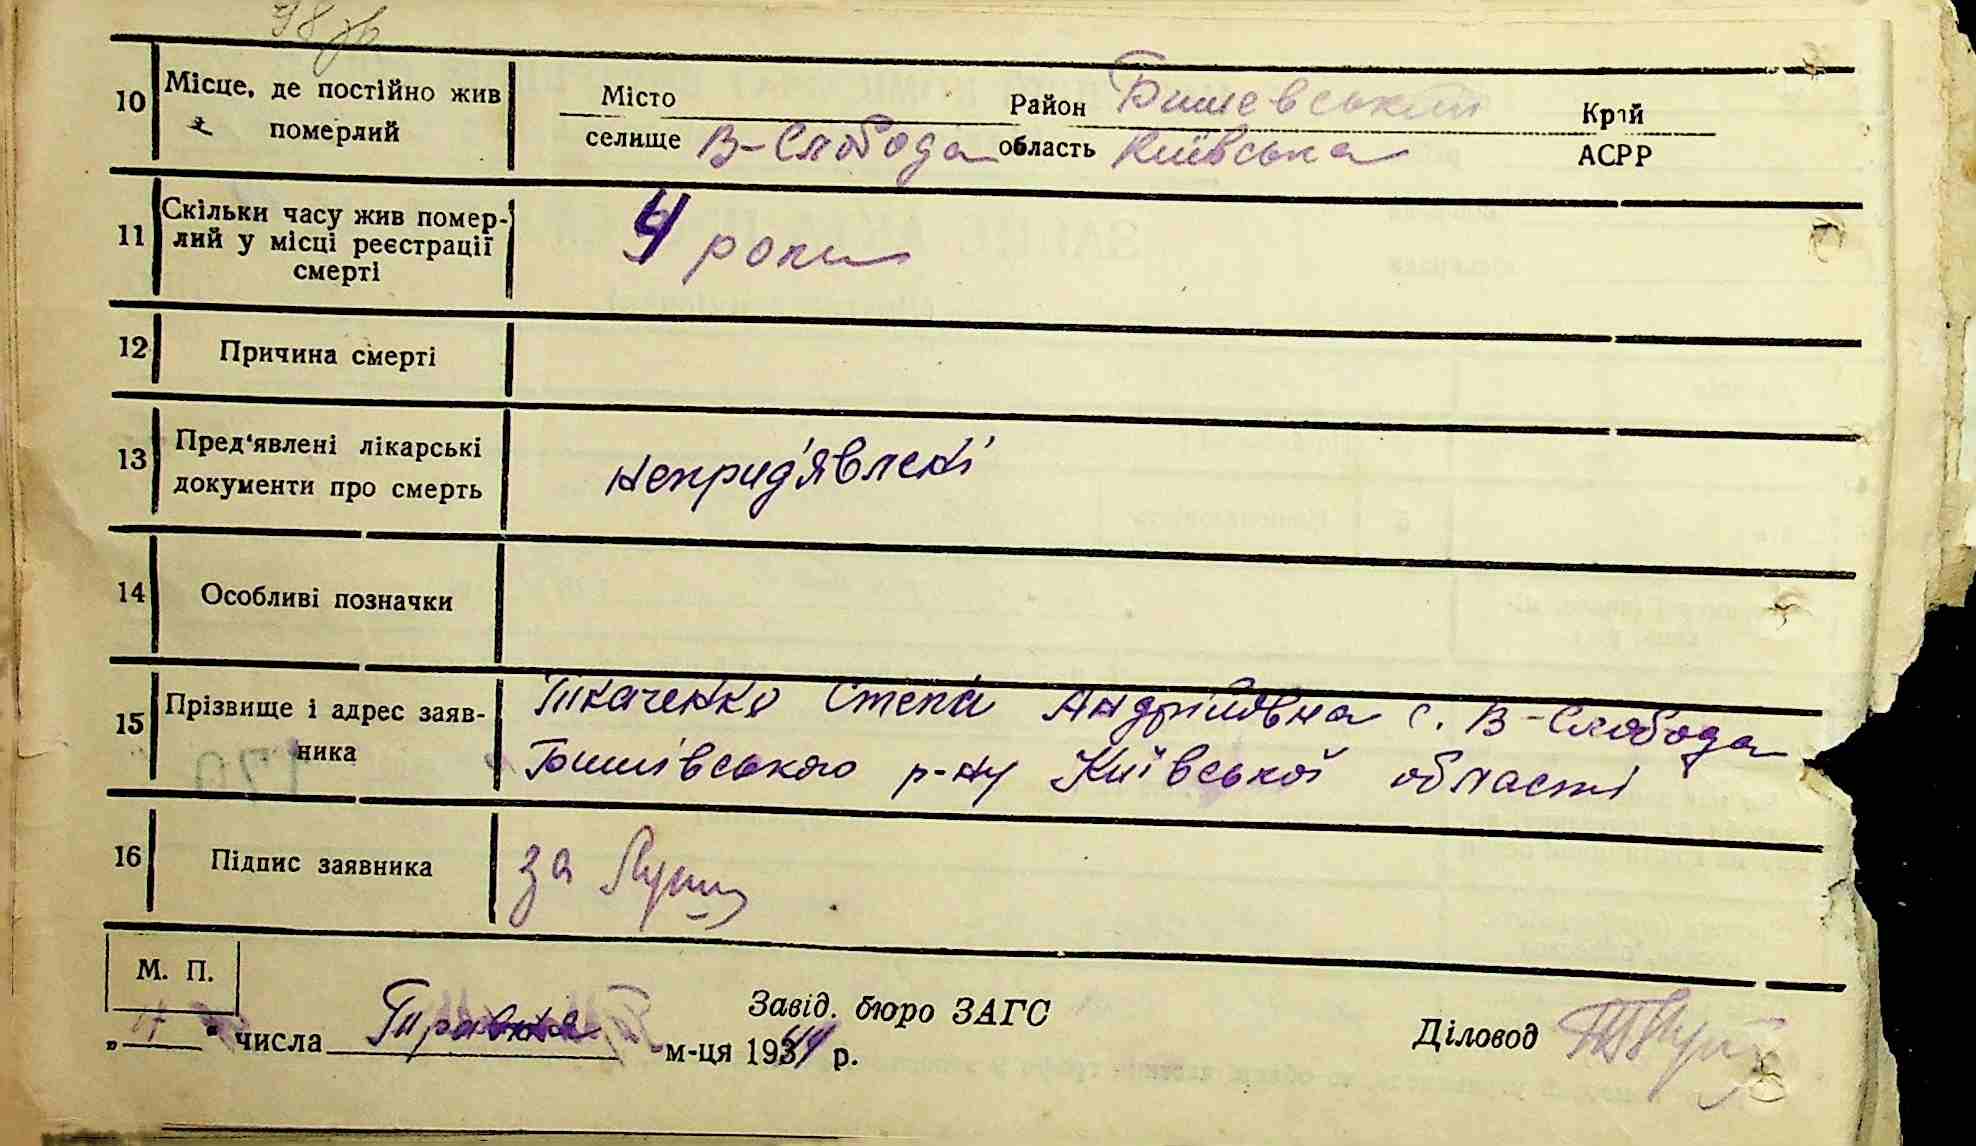 98 зв
10 Місце, де постійно жив Місто Район Бишевський Край
померлий селище В-Слобода область Київська АСРР
11 Скільки часу жив помер-
лий у місці реєстрації 4 роки
смерті
12 Причина смерті
13 Пред'явлені лікарські
документи про смерть неприд'явлені
14 Особливі позначки
15 Прізвище і адрес заяв- Ткаченко Степа Андріївна с. В-Слобода
ника Бишівського р-ну Київської області
16 Підпис заявника за
М. П.
Завід. бюро ЗАГС
„ " числа Травня м-ця 1934 р. Діловод